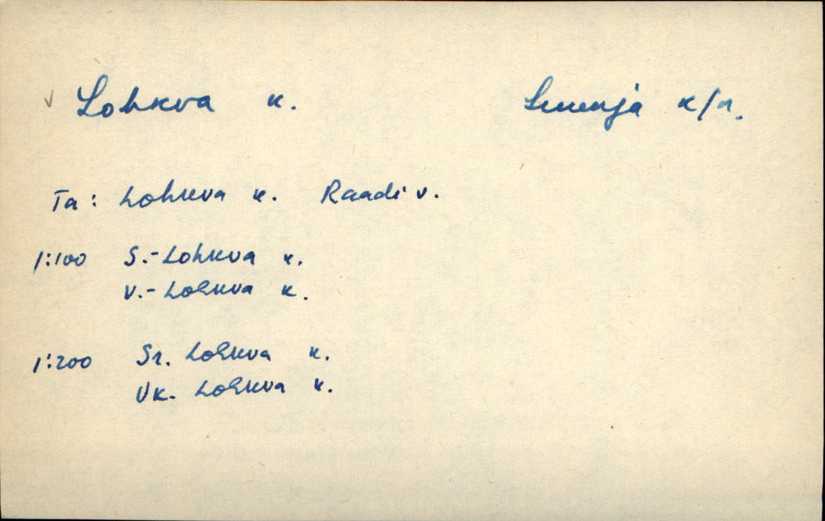 ✓ Lohkva k. Luunja k/n.
Ta: Lohkva k. Raadi v.
1:100 S.-Lohkva k.
V.-Lohkva k.
1:200 Sr. Lohkva k.
Vk. Lohkva k.